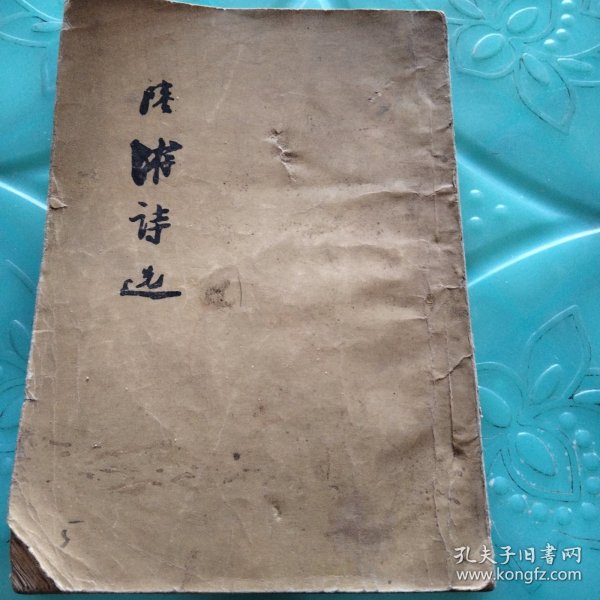 陸游詩选
孔夫子旧書网
www.kongfz.com